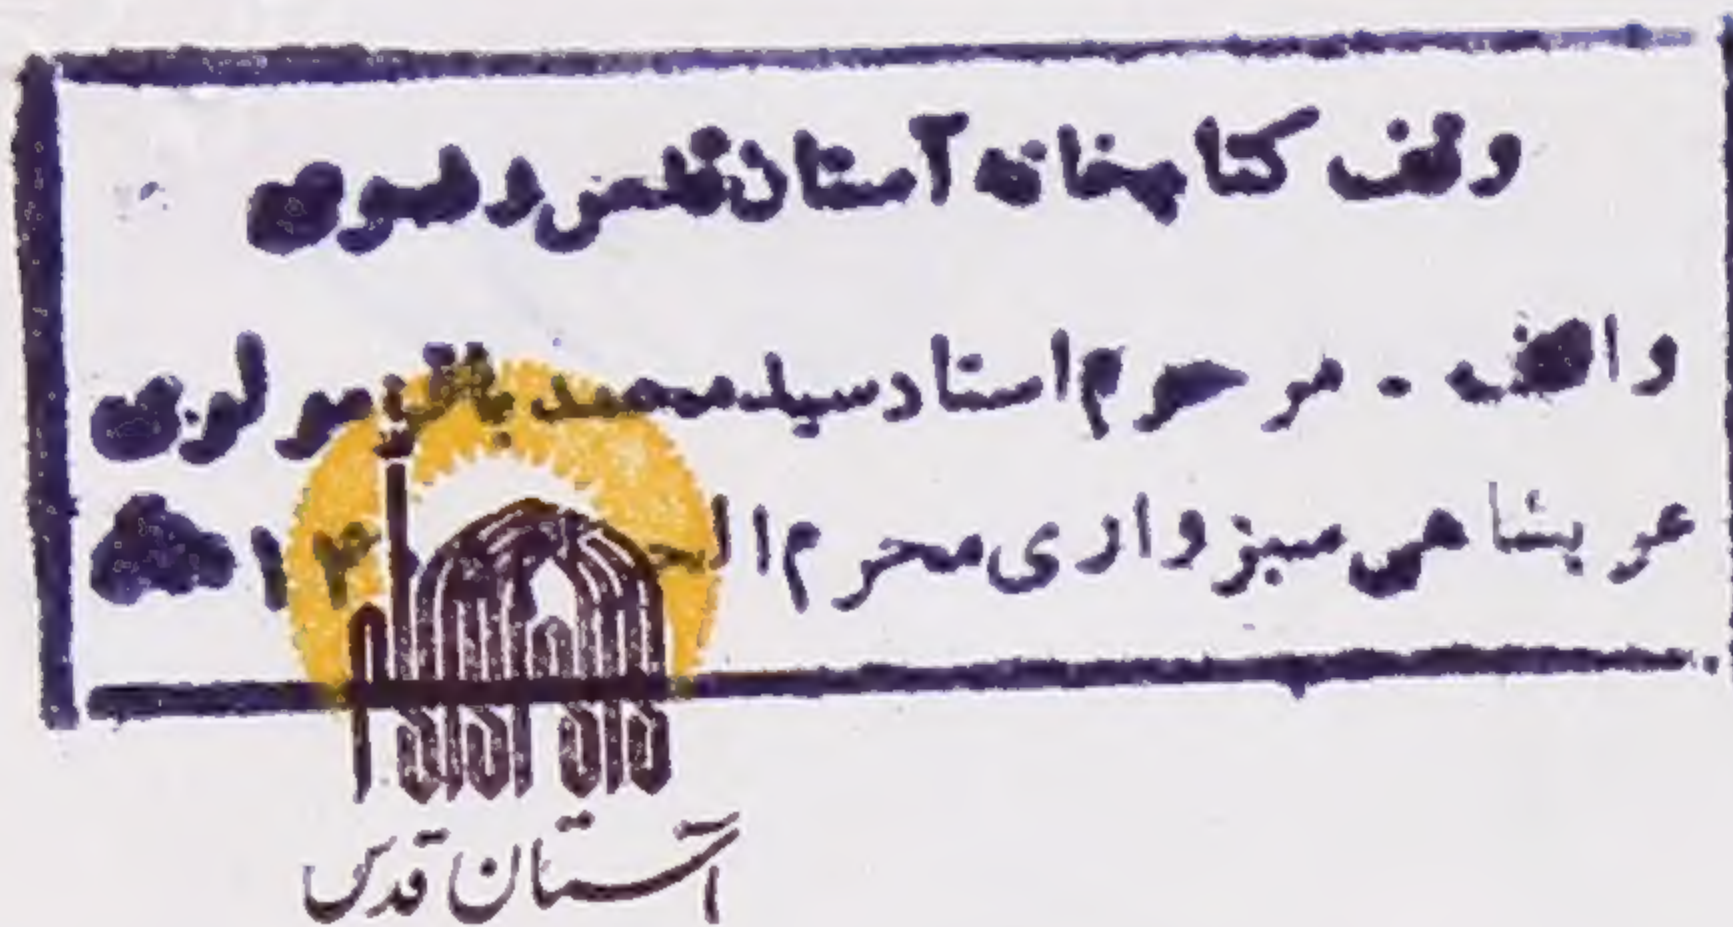 وقف کتابخانه آستان قدس رضوی
واقف - مرحوم استاد سید محمد باقر مولوی
عربشاهی سبزواری محرم
آستان قدس